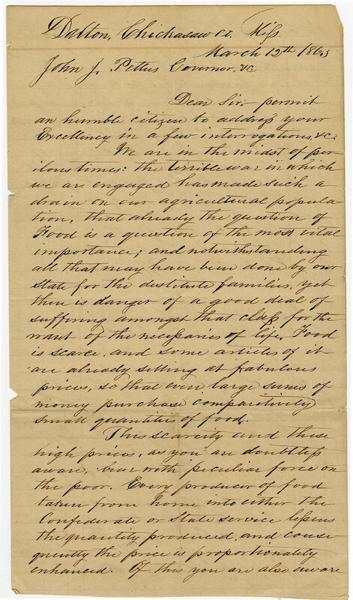 Dalton, Chickasaw Co. Miss
March 12th 1863
John J. Pettus Governor, &c
Dear Sir – permit
an humble citizen to address your
Excellency in a few interrogations, &c.
We are in the midst of per-
ilous times: the terrible war in which
we are engaged has made such a
drain on our agricultural popula-
tion, that already the question of
Food is a question of the most vital
importance; and notwithstanding
all that may have been done by our
State for the destitute families, yet
there is danger of a good deal of
suffering amongst that class for the
want of the necessaries of life. Food
is scarce, and some articles of it
are already selling at fabulous
prices, so that even large sums of
money purchase comparitively
small quantities of food.
This scarcity and these
high prices, as you are doubtless
aware, bear with peculiar force on
the poor. Every producer of food
taken from home into either the
Confederate or State service lessens
the quantity produced, and conse
quently the price is proportionality
enhanced. Of this you are also aware